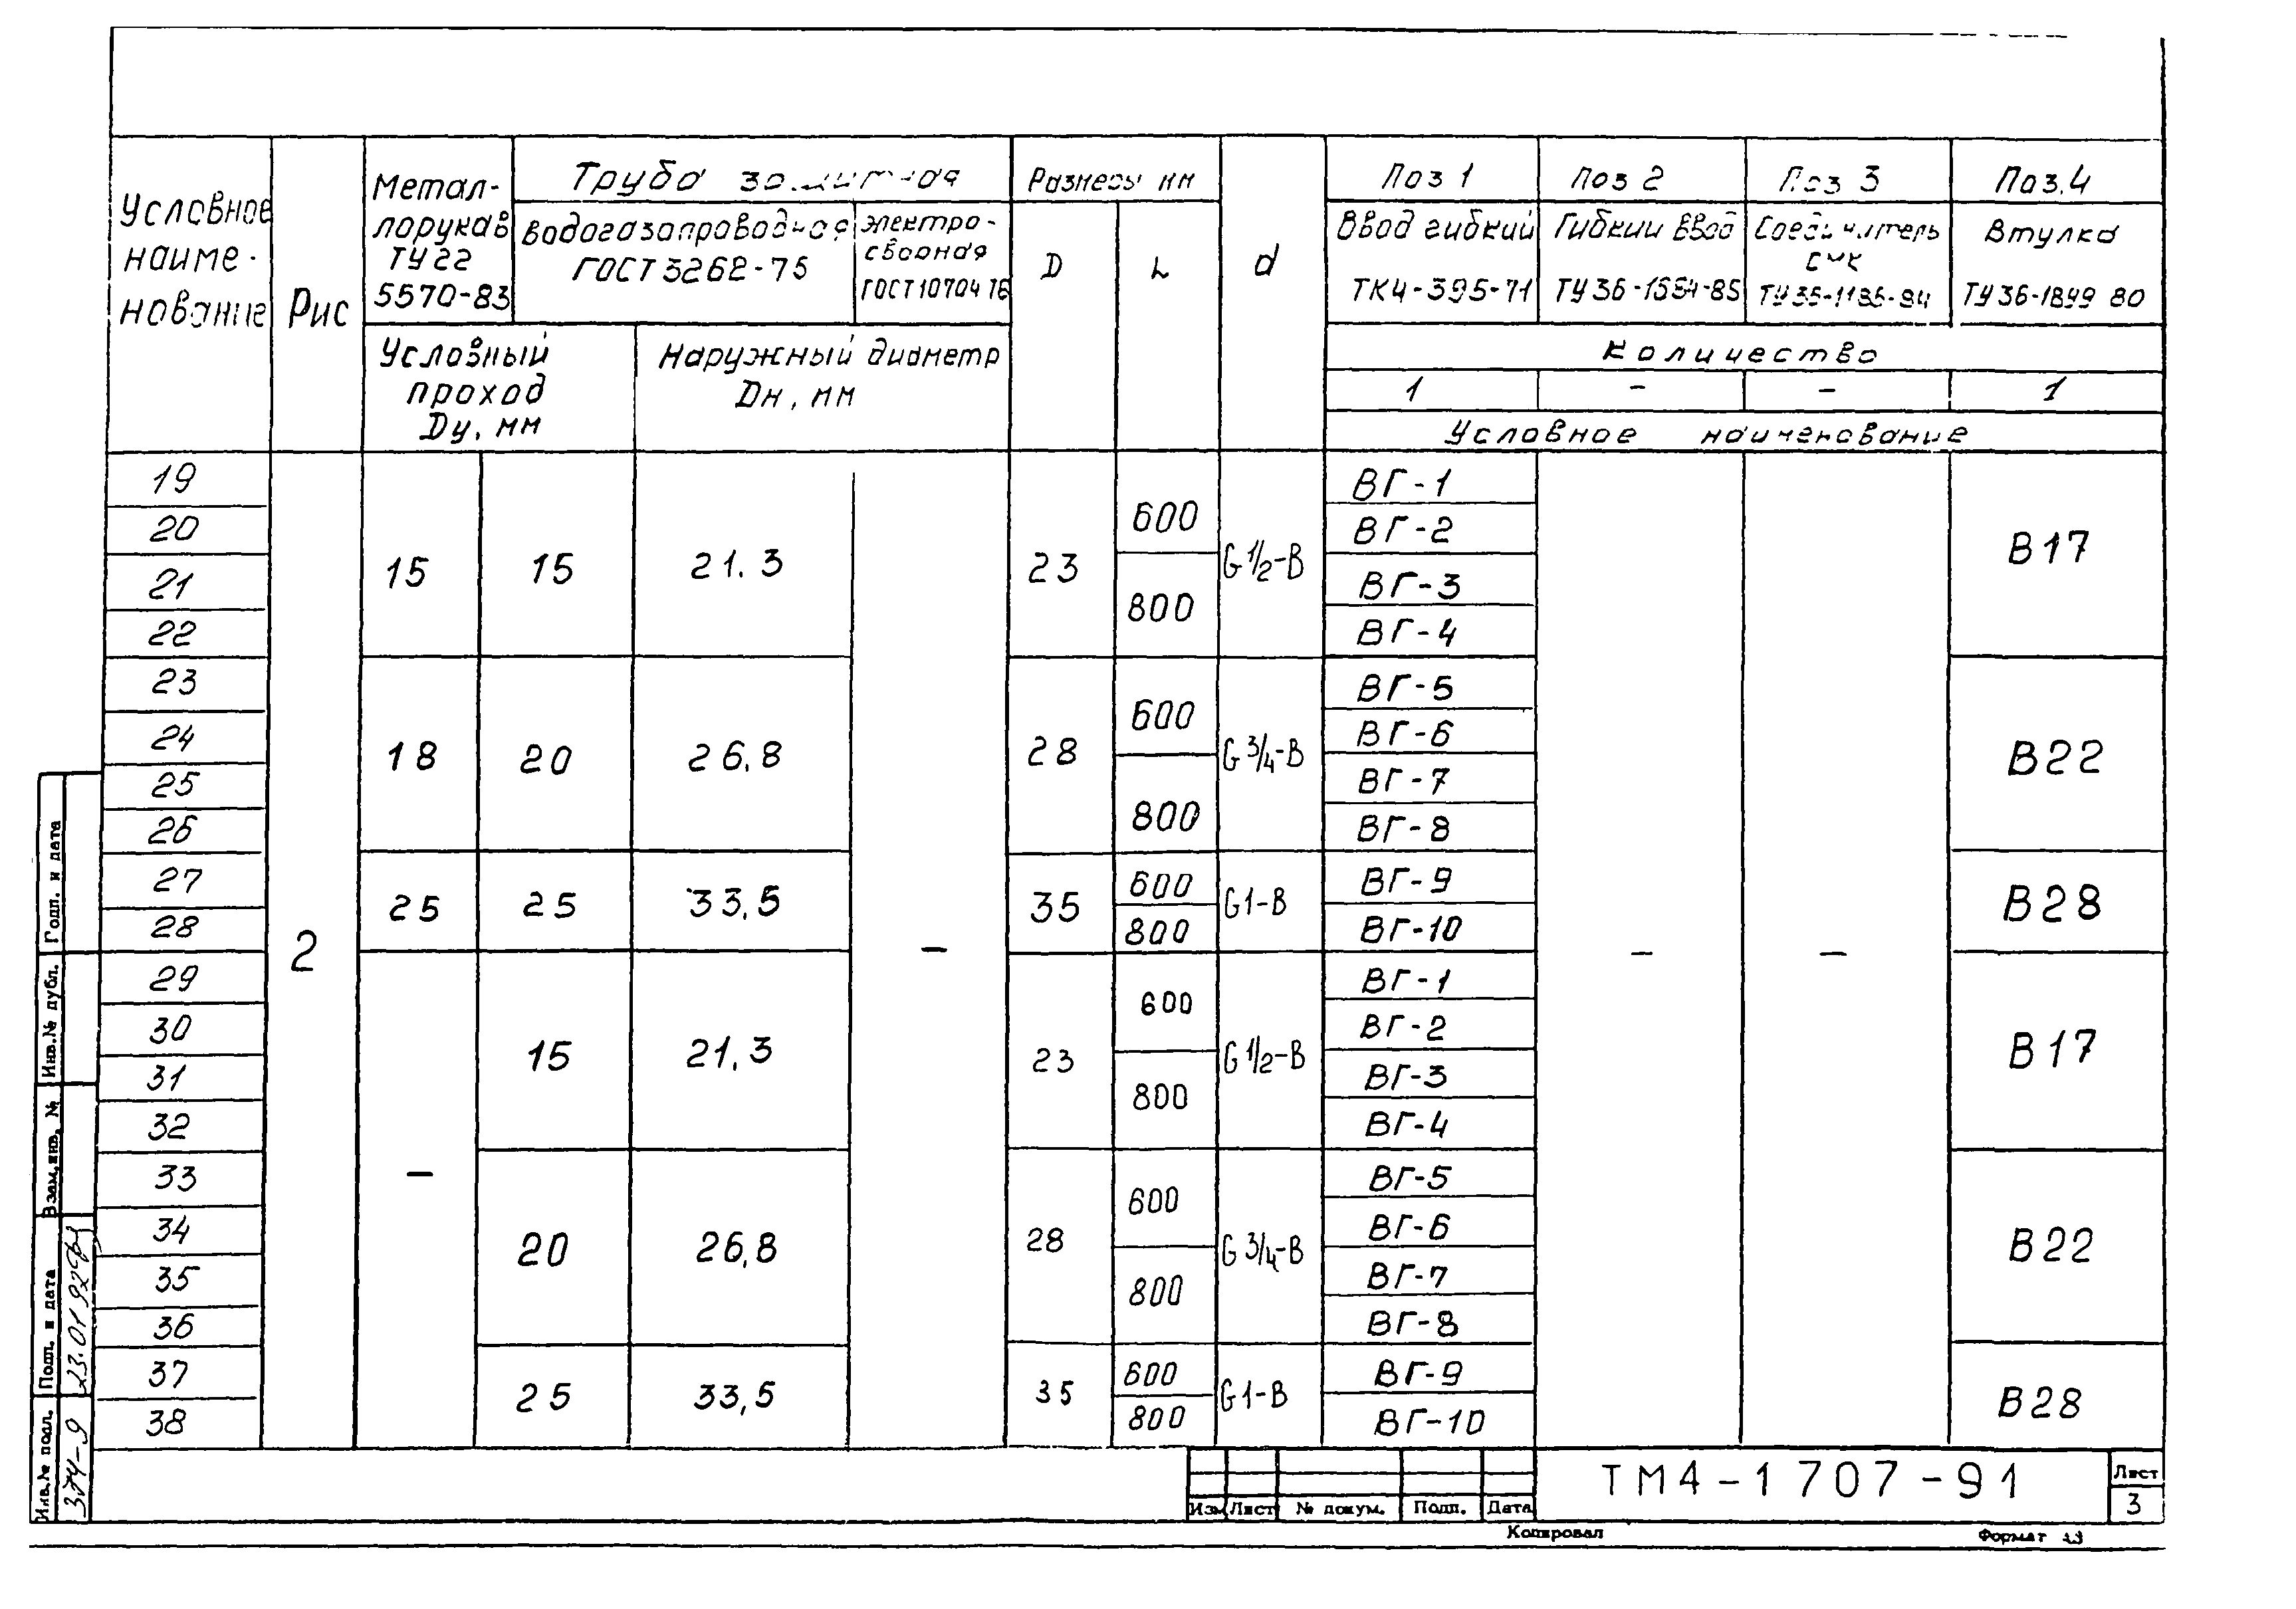 Условное наиме-нование
Рис
Метал-лорукав ТУ 22 5570-83
Труба защитная
водогазопроводная ГОСТ 3262-75
электро-сварная ГОСТ 10704 76
Условный проход Dу, мм
Наружный диаметр Dн, мм
Размеры мм
D
L
d
Поз 1
Поз 2
Поз 3
Поз.4
Ввод гибкий ТК4-395-71
Гибкий ввод ТУ36-1684-85
Соединитель СМК
Втулка ТУ36-1899 80
Количество
1 - - 1
Условное наименование
19 2 15 15 21.3 - 23 600 G 1/2-В ВГ-1 - - В17
20 ВГ-2
21 800 ВГ-3
22 ВГ-4
23 18 20 26,8 28 600 G 3/4-В ВГ-5 В22
24 ВГ-6
25 800 ВГ-7
26 ВГ-8
27 25 25 33,5 35 600 G1-В ВГ-9 В28
28 800 ВГ-10
29 - 15 21,3 23 600 G 1/2-В ВГ-1 В17
30 ВГ-2
31 800 ВГ-3
32 ВГ-4
33 20 26,8 28 600 G 3/4-В ВГ-5 В22
34 ВГ-6
35 800 ВГ-7
36 ВГ-8
37 25 33,5 35 600 G1-В ВГ-9 В28
38 800 ВГ-10
Подп. и дата
Инв.№ дубл.
Взам.инв. №
Подп. и дата 23.01 92
Инв.№ подл. 374-9
Изм Лист № докум. Подп. Дата
ТМ4-1707-91
Лист
3
Копировал
Формат